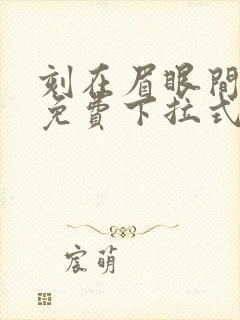 刻在眉眼間
免費下拉式
宸萌